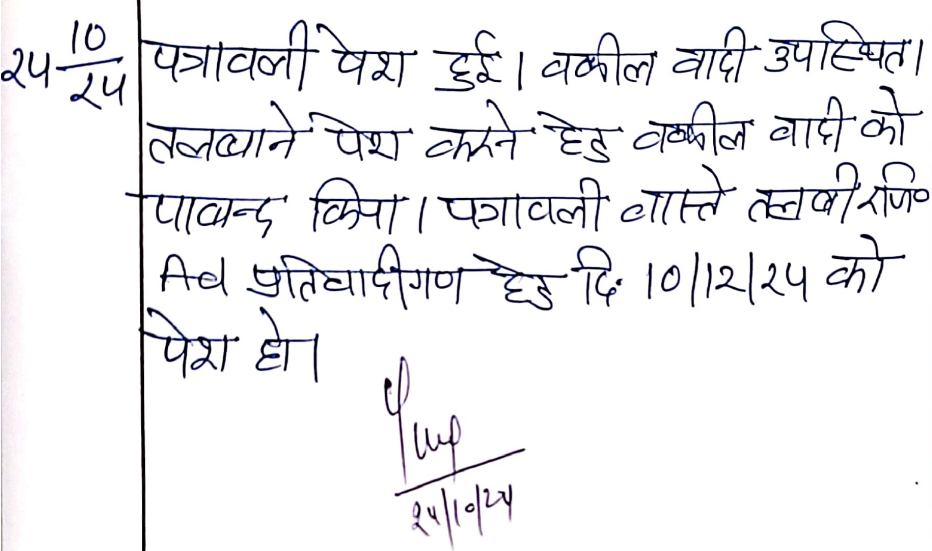 24 10/24
पत्रावली पेश हुई। वकील वादी उपस्थित।
तलबाने पेश करने हेतु वकील वादी को
पाबन्द किया। पत्रावली वास्ते तलबी रजि०
Ad प्रतिवादीगण हेतु दि. 10/12/24 को
पेश हो।
24/10/24